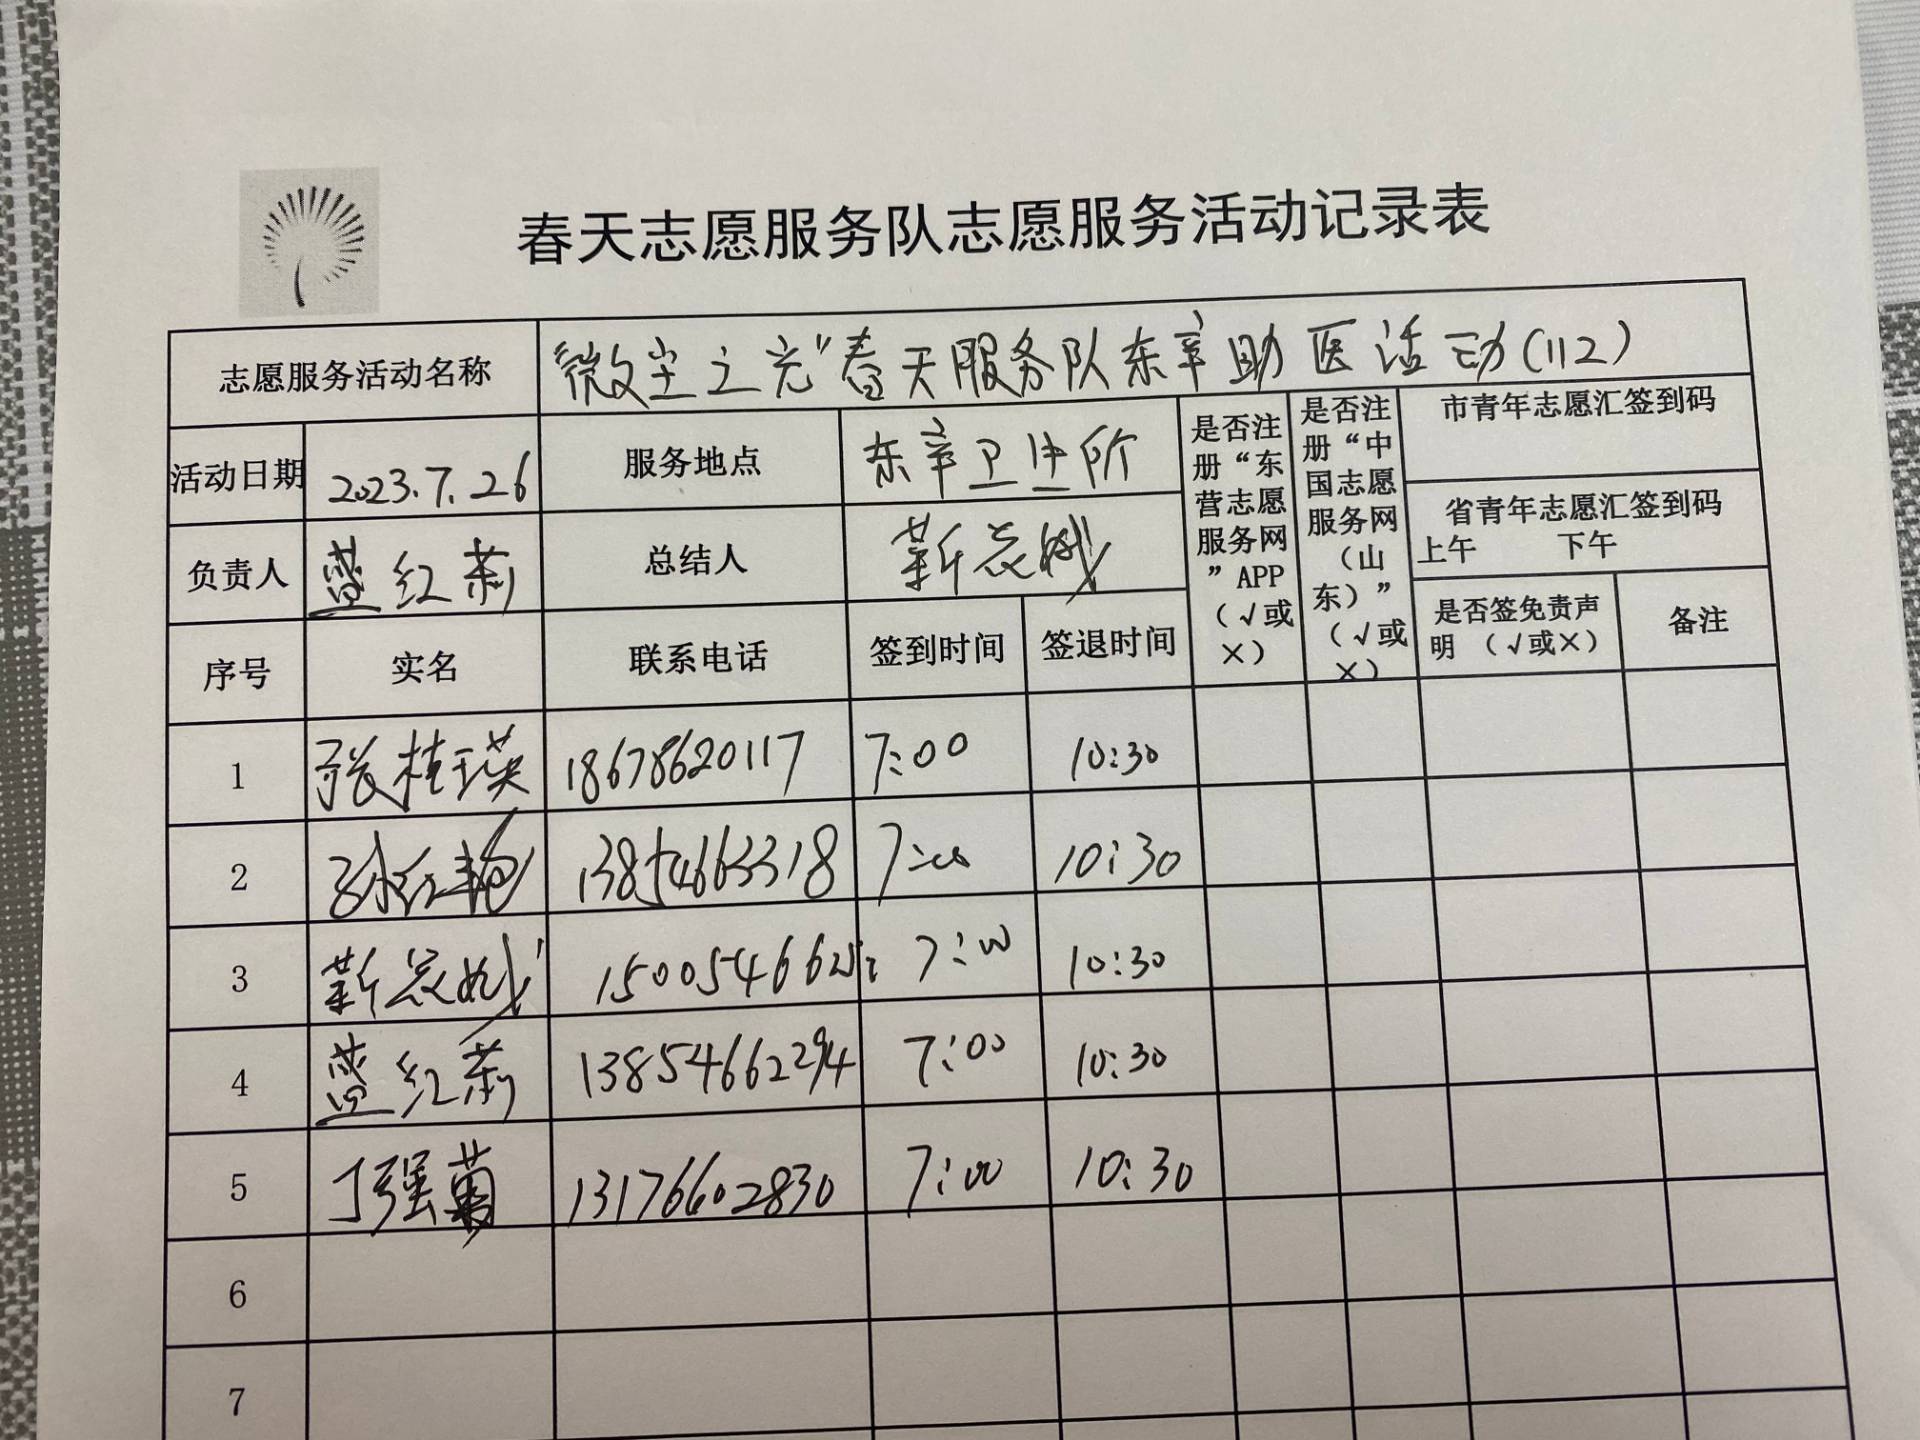 春天志愿服务队志愿服务活动记录表
志愿服务活动名称 “微尘之光”春天服务队东辛助医活动(112)
活动日期 2023.7.26 服务地点 东辛卫生所
负责人 蓝红莉 总结人
是否注
册“东
营志愿
服务网
”APP
（√或
×）
是否注
册“中
国志愿
服务网
（山
东）”
（√或
×）
市青年志愿汇签到码
省青年志愿汇签到码
上午 下午
是否签免责声
明 （√或×）
备注
序号 实名 联系电话 签到时间 签退时间
1 张桂瑛 18678620117 7:00 10:30
2 孙红艳 13854663318 7:00 10:30
3 7:00 10:30
4 蓝红莉 13854662294 7:00 10:30
5 丁强菊 13176602830 7:00 10:30
6
7